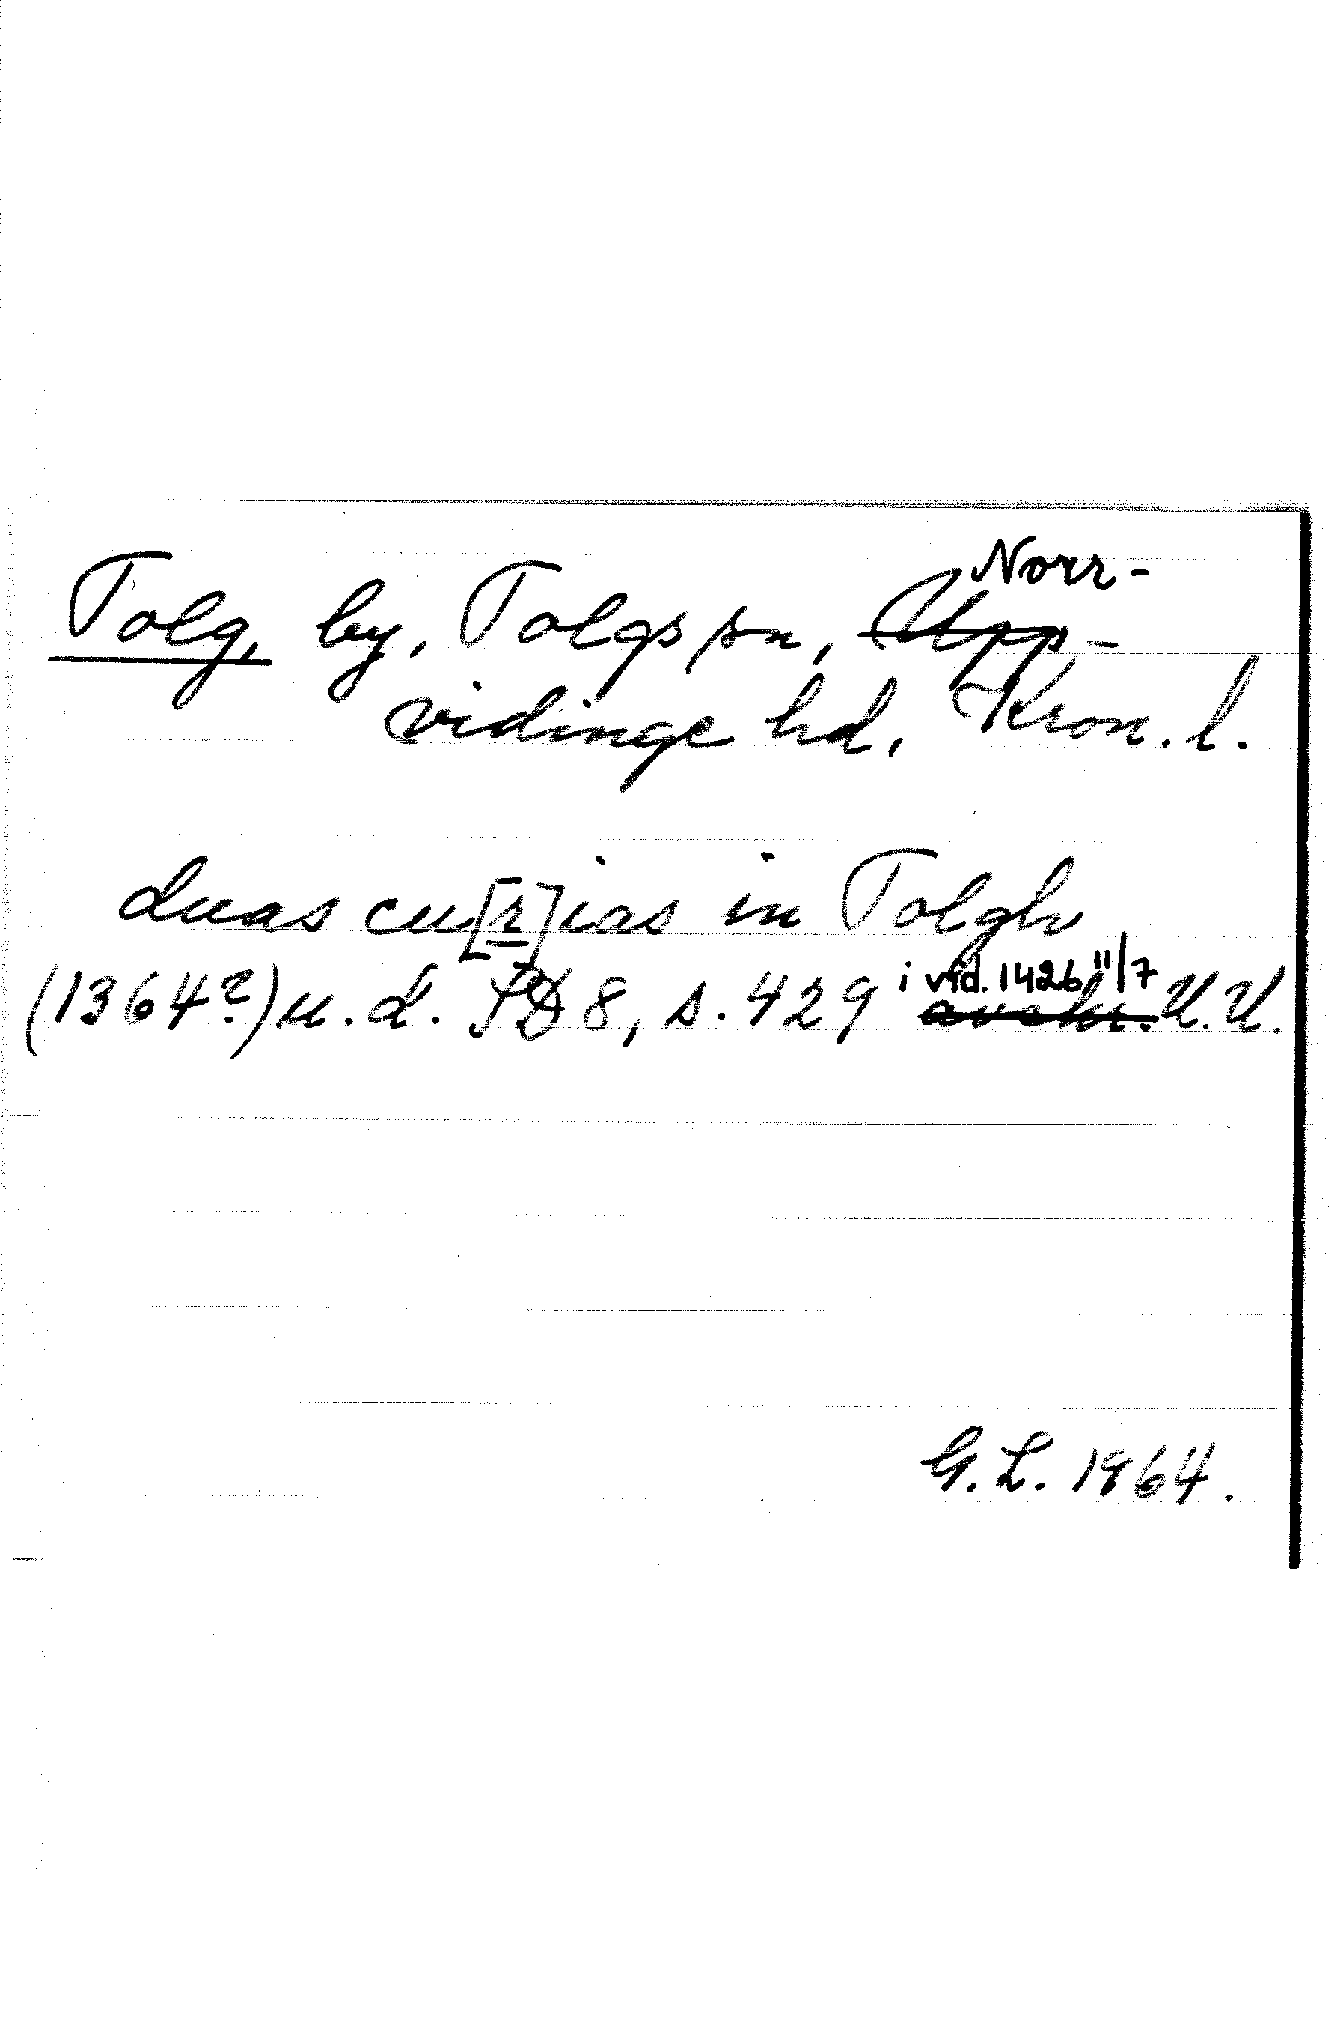 Tolg, by, Tolgs sn, Norr-
vidinge hd, Kron. l.
duas cu[r]ias in Tolgh
(1364?) u. d. SD 8, s. 429 i vid. 1426 11/7 U. U.
G. L. 1964.